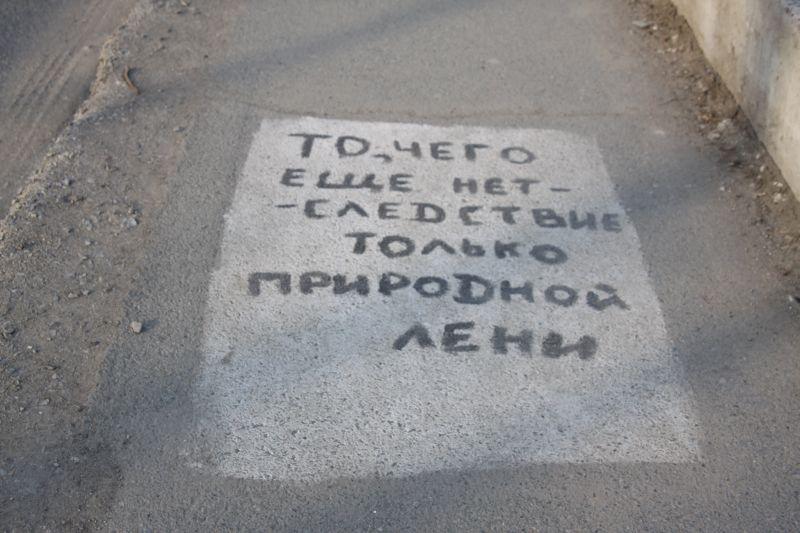 ТО, ЧЕГО
ЕЩЕ НЕТ-
-СЛЕДСТВИЕ
ТОЛЬКО
ПРИРОДНОЙ
ЛЕНИ